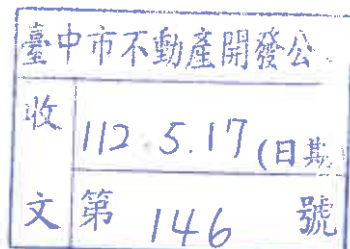 臺中市不動產開發公
收
112.5.17(日期
文 第 146 號